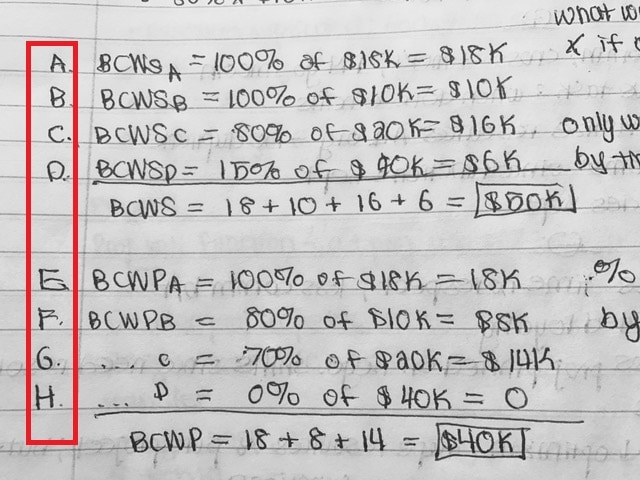 what wo
A. BCWSA = 100% of $18K = $18K x if
B. BCWSB = 100% of $10K = $10K
C. BCWSC = 80% of $20K = $16K, only w
D. BCWSD = 15% of $40K = $6K by th
BCWS = 18 + 10 + 16 + 6 = $50K
E. BCWPA = 100% of $18K = 18K %
F. BCWPB = 80% of $10K = $8K by
G. ... C = 70% of $20K = $14K
H. ... D = 0% of $40K = 0
BCWP = 18 + 8 + 14 = $40K